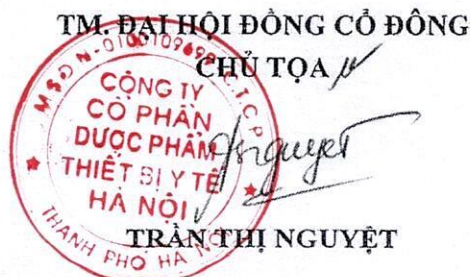 TM. ĐẠI HỘI ĐỒNG CỔ ĐÔNG
CHỦ TỌA
M.S.D.N-0100109699-C.T.C.P
CÔNG TY
CỔ PHẦN
DƯỢC PHẨM
THIẾT BỊ Y TẾ
HÀ NỘI
THÀNH PHỐ HÀ NỘI
Nguyet
TRẦN THỊ NGUYỆT